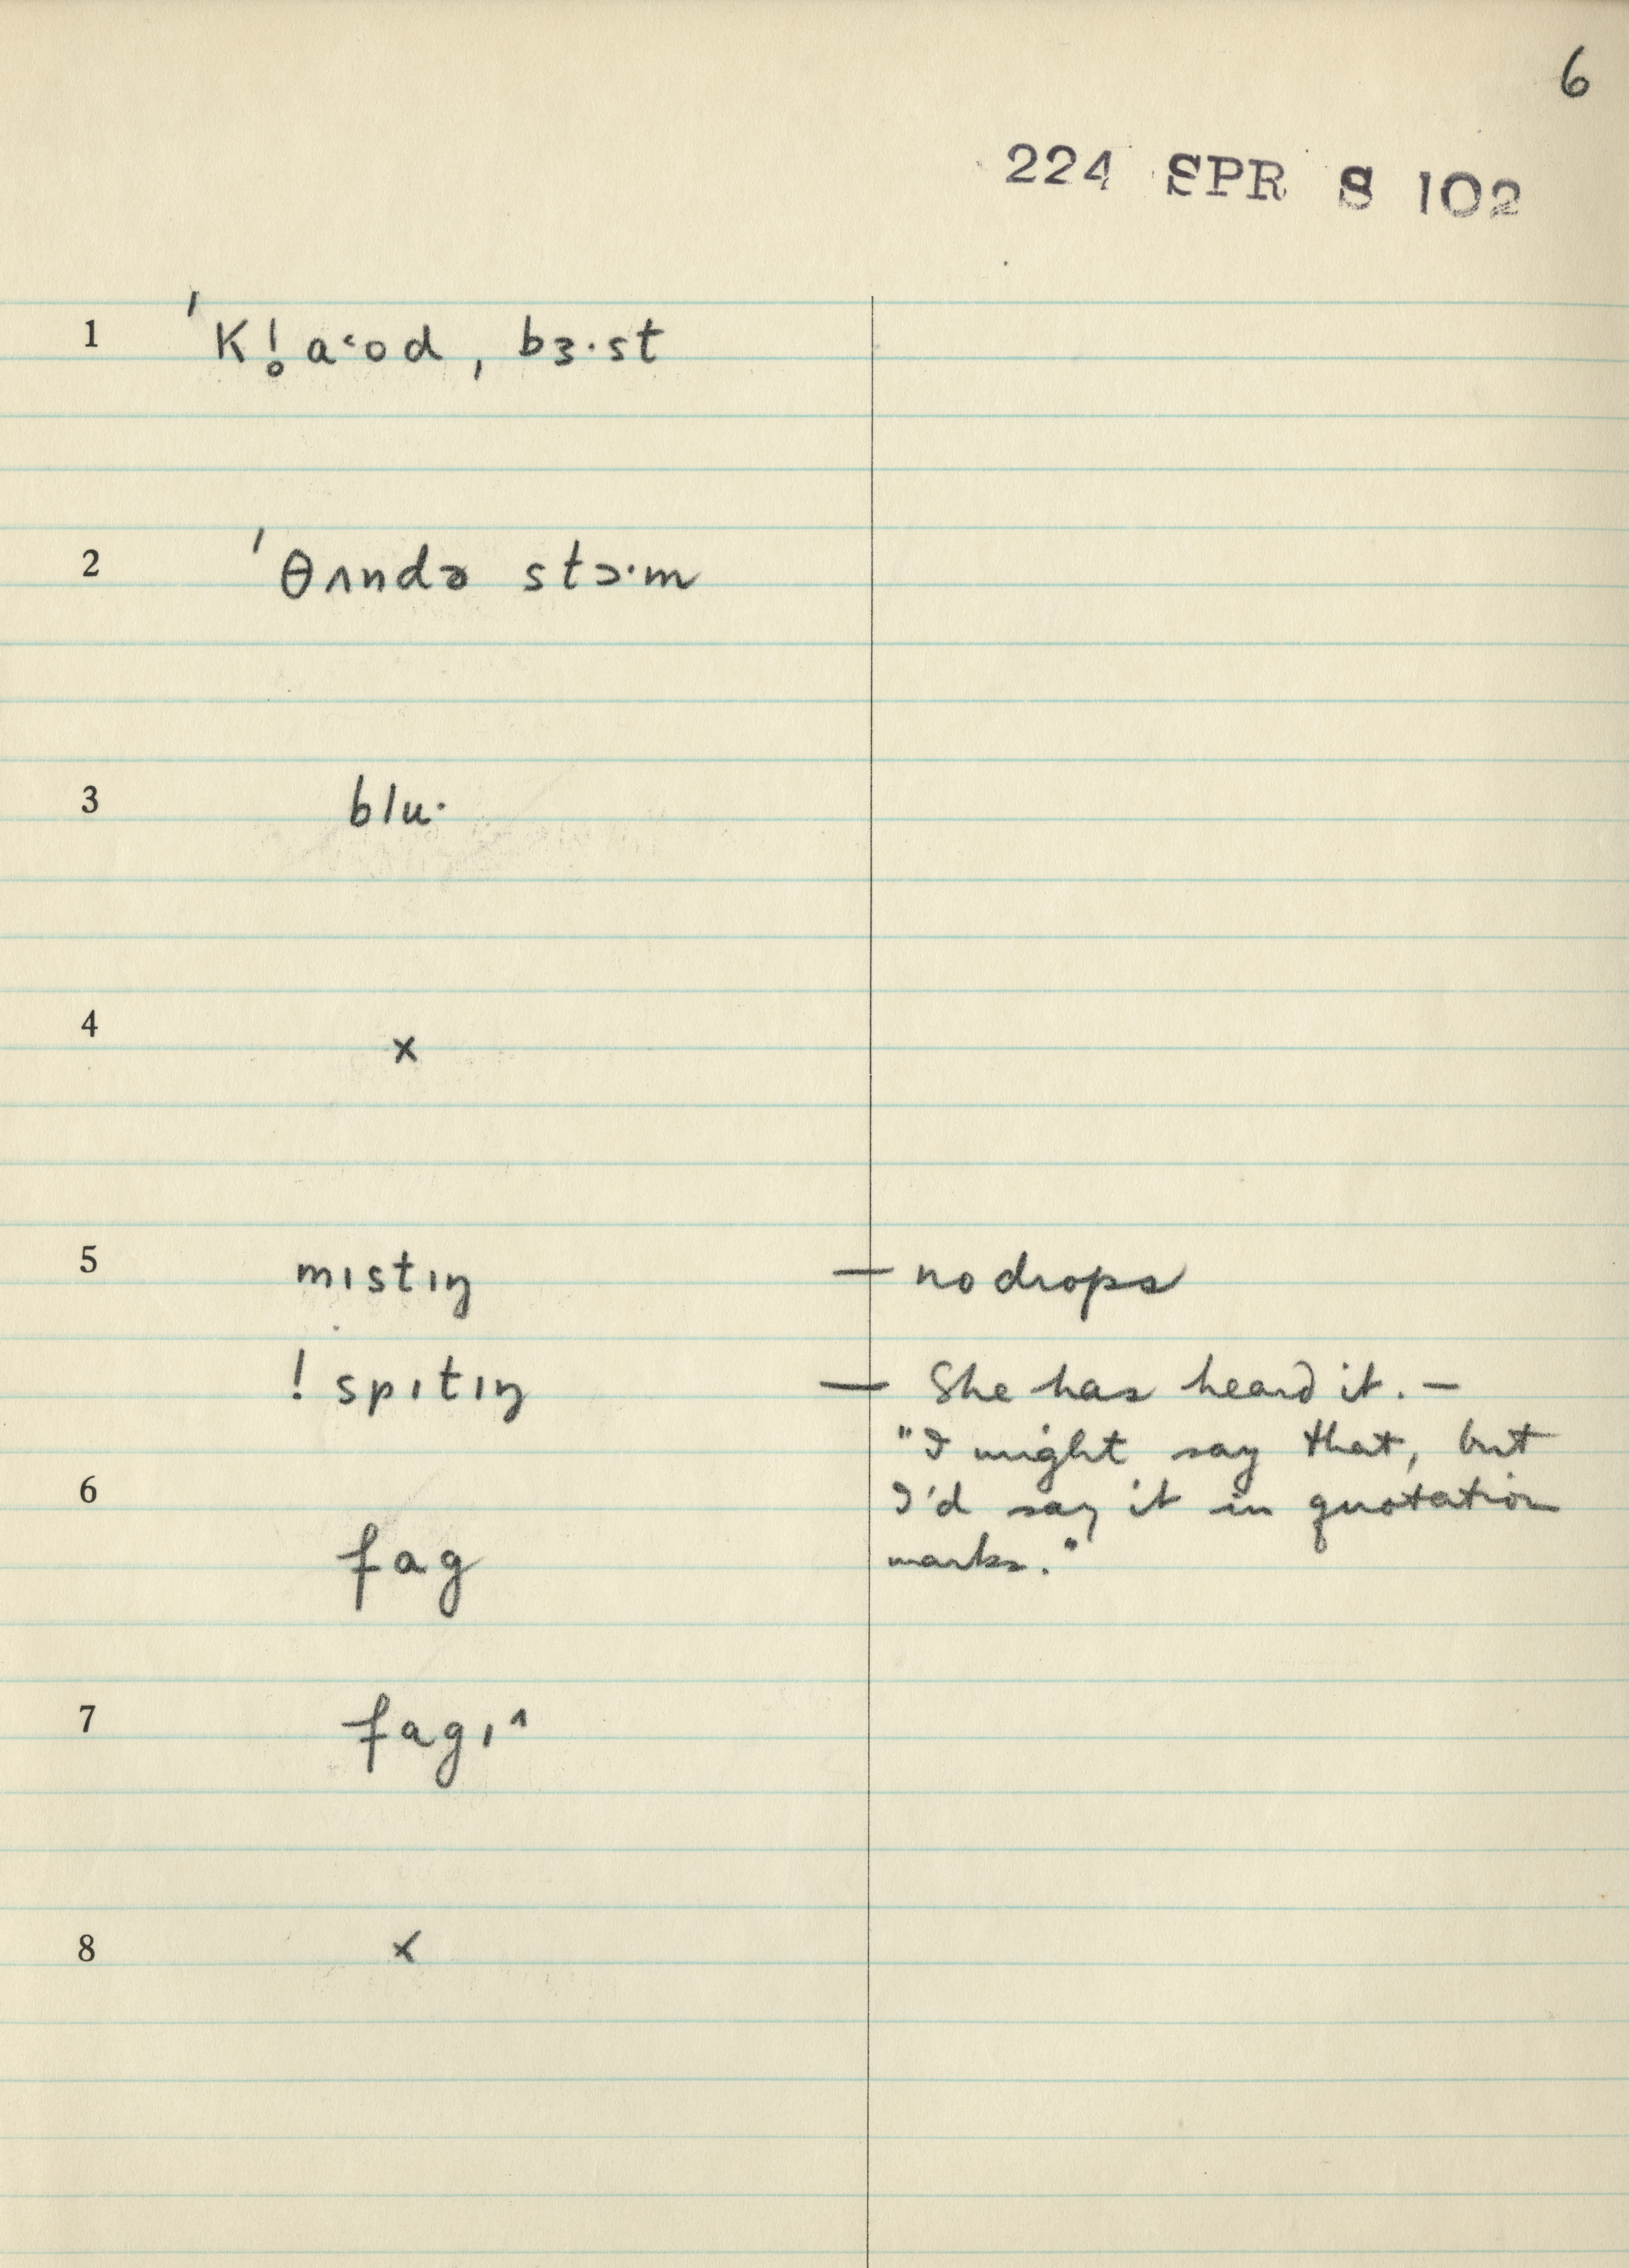 6
224 SPR S 102
1 ˈKl̥aˑod ˌbɜ·st
2 ˈθʌndə stɔ·m
3 blu·
4 ×
5 mıstıŋ — no drops
! spıtıŋ — She has heard it. —
"I might say that, but
6 I'd say it in quotation
fag marks."
7 fagı^
8 ×